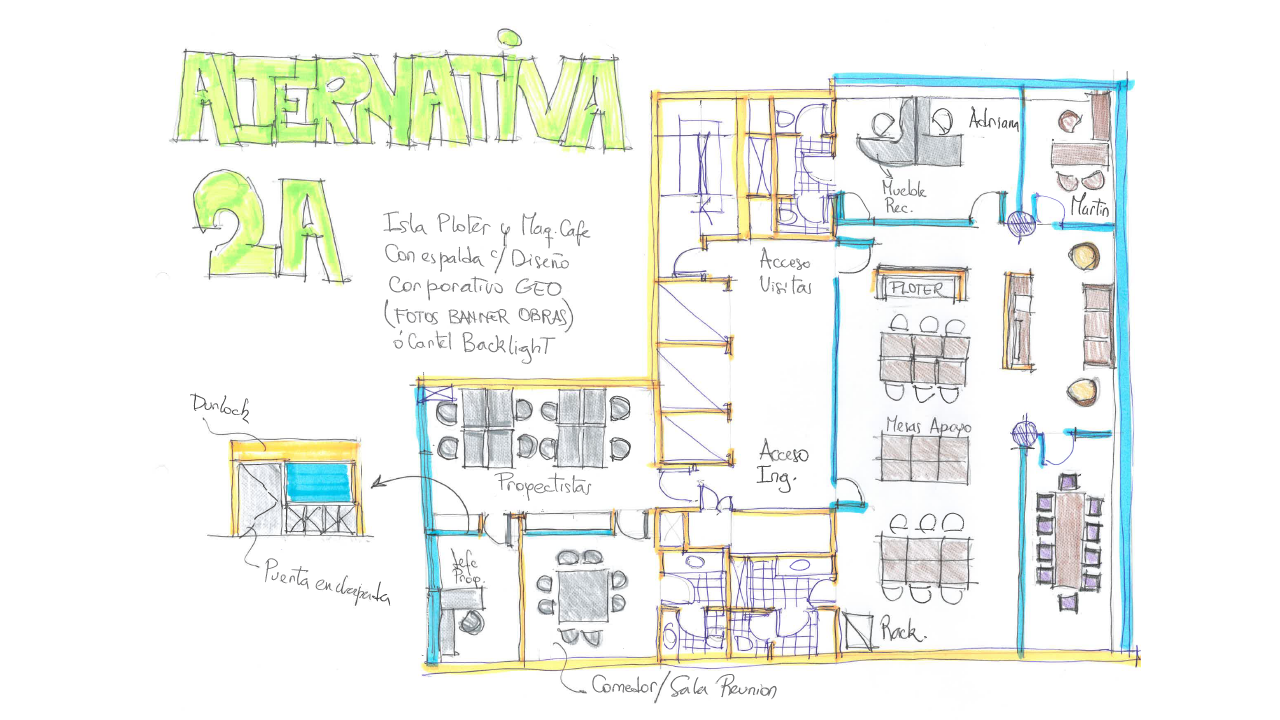 ALTERNATIVA
2A
Isla Ploter y Maq. Cafe
Con espalda c/ Diseño
Corporativo GEO
(FOTOS BANNER OBRAS)
ó Cartel BacklighT
Adrisam
Mueble
Rec.
Martin
Acceso
Visitas
PLOTER
Durlock
Mesas Apoyo
Acceso
Ing.
Propectistas
Jefe
Prop.
Puerta enchapada
Rack.
Comedor/Sala Reunion